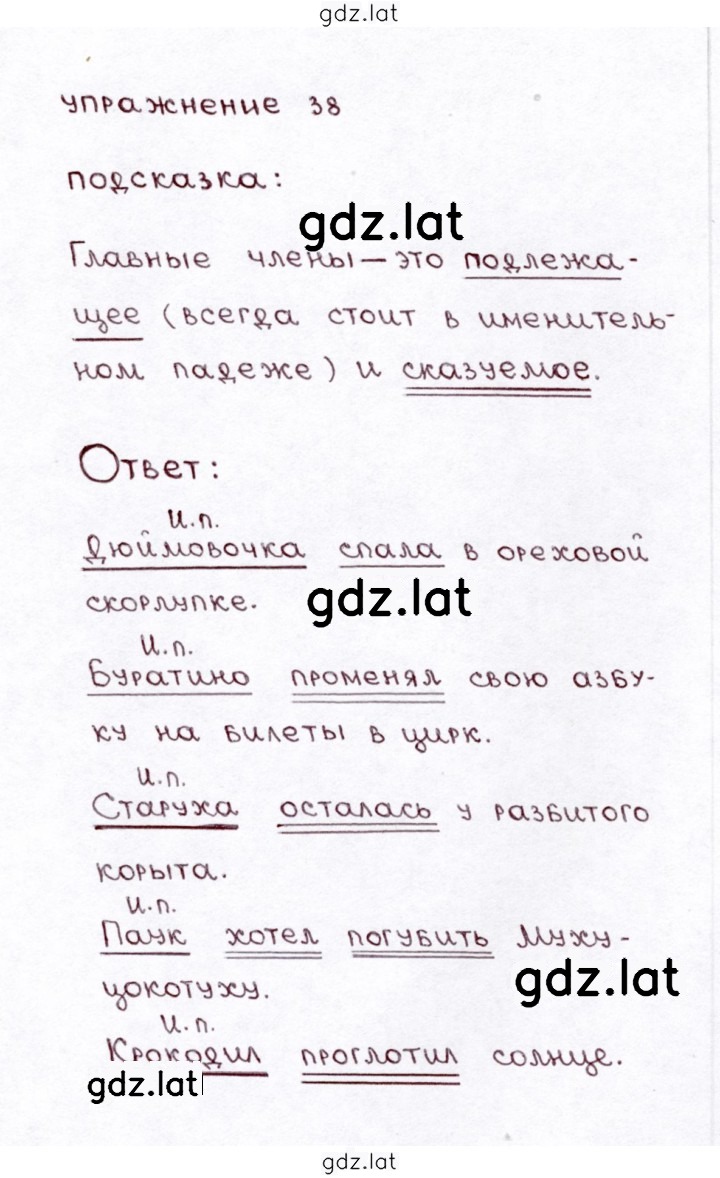 gdz.lat
упражнение 38
подсказка:
gdz.lat
Главные члены — это подлежа-
щее (всегда стоит в именитель-
ном падеже) и сказуемое.
Ответ:
И.п.
Дюймовочка спала в ореховой
скорлупке.
gdz.lat
И.п.
Буратино променял свою азбу-
ку на билеты в цирк.
И.п.
Старуха осталась у разбитого
корыта.
И.п.
Паук хотел погубить Муху-
цокотуху.
gdz.lat
И.п.
Крокодил проглотил солнце.
gdz.lat
gdz.lat